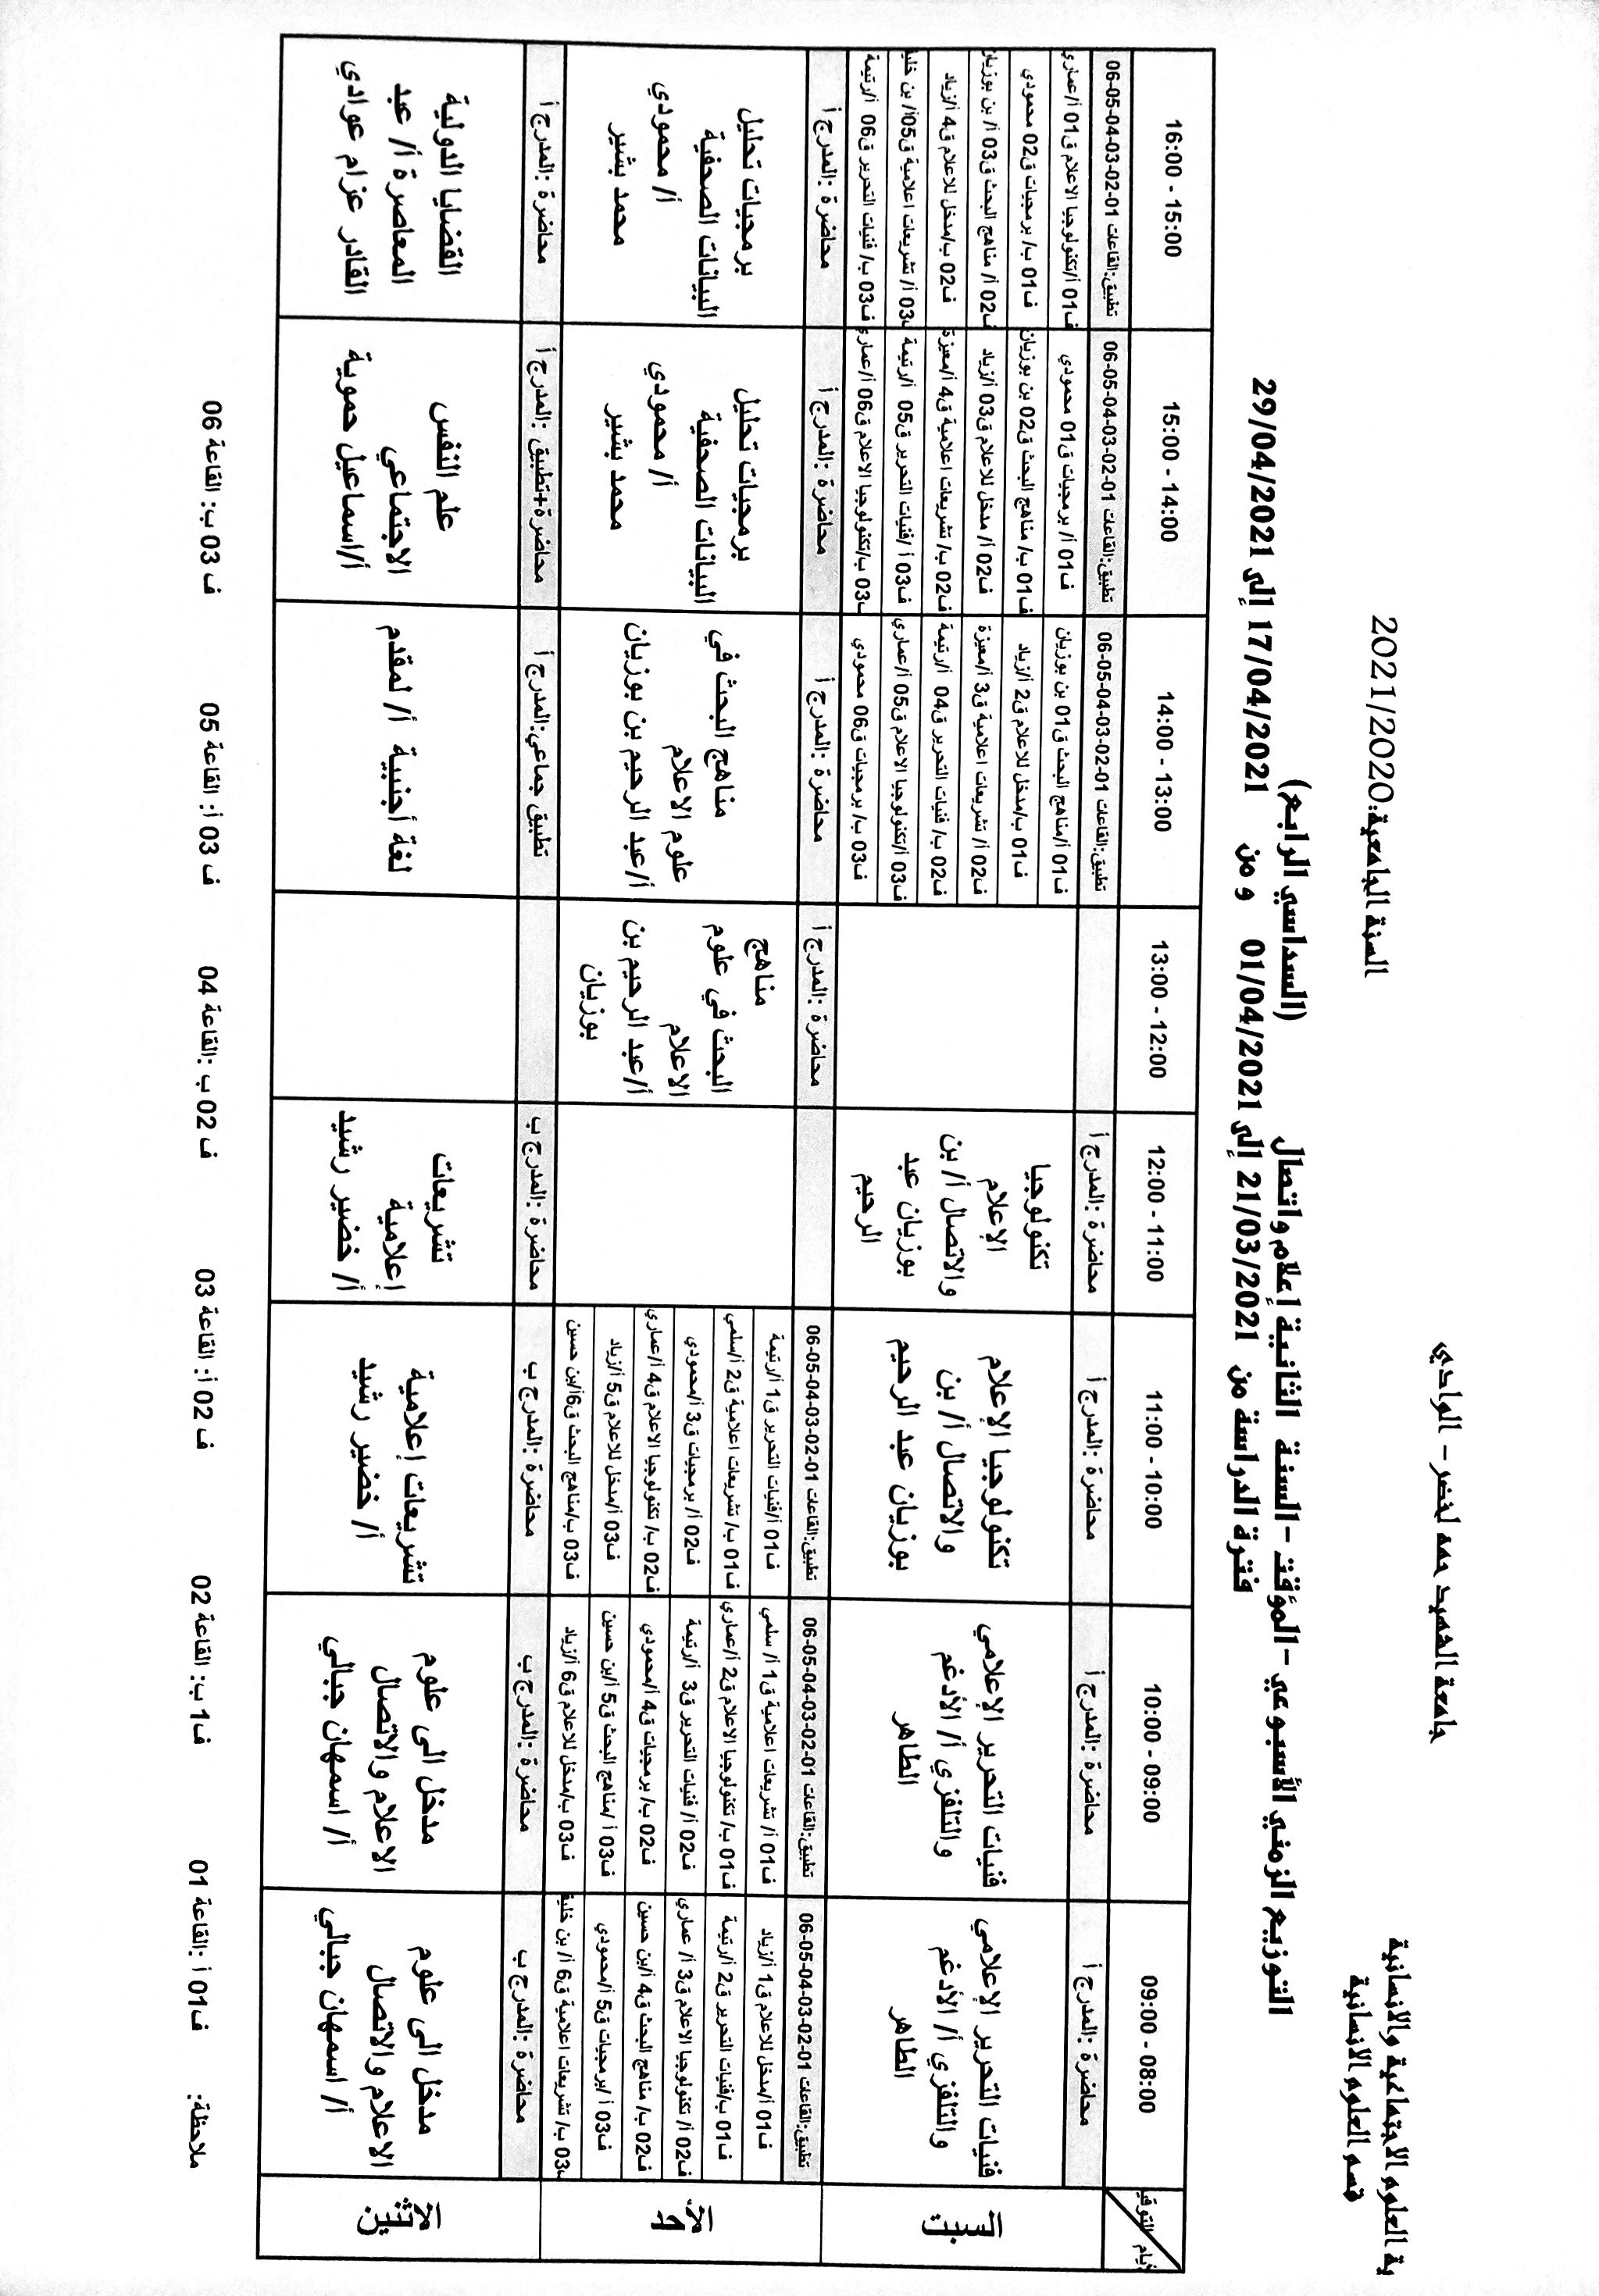 جامعة الشهيد حمه لخضر- الوادي
ية العلوم الاجتماعية والانسانية
قسم العلوم الانسانية
السنة الجامعية:2021/2020
التوزيع الزمني الأسبوعي -المؤقت -السنة الثانية إعلام واتصال (السداسي الرابع)
فترة الدراسة من 21/03/2021 إلى 01/04/2021 و من 17/04/2021 إلى 29/04/2021
التوقيت
الأيام
09:00 - 08:00
10:00 - 09:00
11:00 - 10:00
12:00 - 11:00
13:00 - 12:00
14:00 - 13:00
15:00 - 14:00
16:00 - 15:00
السبت
محاضرة :المدرج أ
فنيات التحرير الإعلامي
والتلفزي أ/ الأدغم
الطاهر
محاضرة :المدرج أ
فنيات التحرير الإعلامي
والتلفزي أ/ الأدغم
الطاهر
محاضرة :المدرج أ
تكنولوجيا الإعلام
والاتصال أ/ بن
بوزيان عبد الرحيم
محاضرة :المدرج أ
تكنولوجيا
الإعلام
والاتصال أ/ بن
بوزيان عبد
الرحيم
تطبيق:القاعات 01-02-03-04-05-06
ف01 أ/مناهج البحث ق01 بن بوزيان
ف01 ب/مدخل للاعلام ق2 أ/زياد
ف02 أ/ تشريعات اعلامية ق3 أ/معيزة
ف02 ب/ فنيات التحرير ق04 أ/رتيمة
ف03 أ/تكنولوجيا الاعلام ق05 أ/عماري
ف03 ب/ برمجيات ق06 محمودي
تطبيق:القاعات 01-02-03-04-05-06
ف01 أ/ برمجيات ق01 محمودي
ف01 ب/ مناهج البحث ق02 بن بوزيان
ف02 أ/ مدخل للاعلام ق03 أ/زياد
ف02 ب/ تشريعات اعلامية ق4 أ/معيزة
ف03 أ /فنيات التحرير ق05 أ/رتيمة
ف03 ب/تكنولوجيا الاعلام ق06 أ/عماري
تطبيق:القاعات 01-02-03-04-05-06
ف01 أ/تكنولوجيا الاعلام ق01 أ/عماري
ف01 ب/ برمجيات ق02 محمودي
ف02 أ/ مناهج البحث ق03 أ/ بن بوزيان
ف02 ب/مدخل للاعلام ق4 أ/زياد
ف03 أ/ تشريعات اعلامية ق05أ/ بن خليفة
ف03 ب/ فنيات التحرير ق06 أ/رتيمة
الأحد
تطبيق:القاعات 01-02-03-04-05-06
ف01 أ/مدخل للاعلام ق1 أ/زياد
ف01 ب/فنيات التحرير ق2 أ/رتيمة
ف02 أ/ تكنولوجيا الاعلام ق3 أ/ عماري
ف02 ب/ مناهج البحث ق4 أ/بن حسين
ف03 أ /برمجيات ق5 أ/محمودي
ف03 ب/ تشريعات اعلامية ق6 أ/ بن خليفة
تطبيق:القاعات 01-02-03-04-05-06
ف01 أ/ تشريعات اعلامية ق1 أ/ سلمي
ف01 ب/ تكنولوجيا الاعلام ق2 أ/عماري
ف02 أ/ فنيات التحرير ق3 أ/رتيمة
ف02 ب/ برمجيات ق4 أ/محمودي
ف03 أ /مناهج البحث ق5 أ/بن حسين
ف03 ب/مدخل للاعلام ق6 أ/زياد
تطبيق:القاعات 01-02-03-04-05-06
ف01 أ/فنيات التحرير ق1 أ/رتيمة
ف01 ب/ تشريعات اعلامية ق2 أ/سلمي
ف02 أ/ برمجيات ق3 أ/محمودي
ف02 ب/ تكنولوجيا الاعلام ق4 أ/عماري
ف03 أ/مدخل للاعلام ق5 أ/زياد
ف03 ب/مناهج البحث ق6أ/بن حسين
محاضرة :المدرج أ
مناهج
البحث في علوم
الاعلام
أ/عبد الرحيم بن
بوزيان
محاضرة :المدرج أ
مناهج البحث في
علوم الاعلام
أ/عبد الرحيم بن بوزيان
محاضرة :المدرج أ
برمجيات تحليل
البيانات الصحفية
أ/ محمودي
محمد بشير
محاضرة :المدرج أ
برمجيات تحليل
البيانات الصحفية
أ/ محمودي
محمد بشير
الاثنين
محاضرة :المدرج ب
مدخل الى علوم
الاعلام والاتصال
أ/ اسمهان جبالي
محاضرة :المدرج ب
مدخل الى علوم
الاعلام والاتصال
أ/ اسمهان جبالي
محاضرة :المدرج ب
تشريعات إعلامية
أ/ خضير رشيد
محاضرة :المدرج ب
تشريعات
إعلامية
أ/ خضير رشيد
تطبيق جماعي:المدرج أ
لغة أجنبية أ/ لمقدم
محاضرة+تطبيق :المدرج أ
علم النفس
الاجتماعي
أ/اسماعيل حموية
محاضرة :المدرج أ
القضايا الدولية
المعاصرة أ/ عبد
القادر عزام عوادي
ملاحظة: ف01 أ :القاعة 01 ف1 ب: القاعة 02 ف 02 أ: القاعة 03 ف 02 ب :القاعة 04 ف 03 أ: القاعة 05 ف 03 ب: القاعة 06